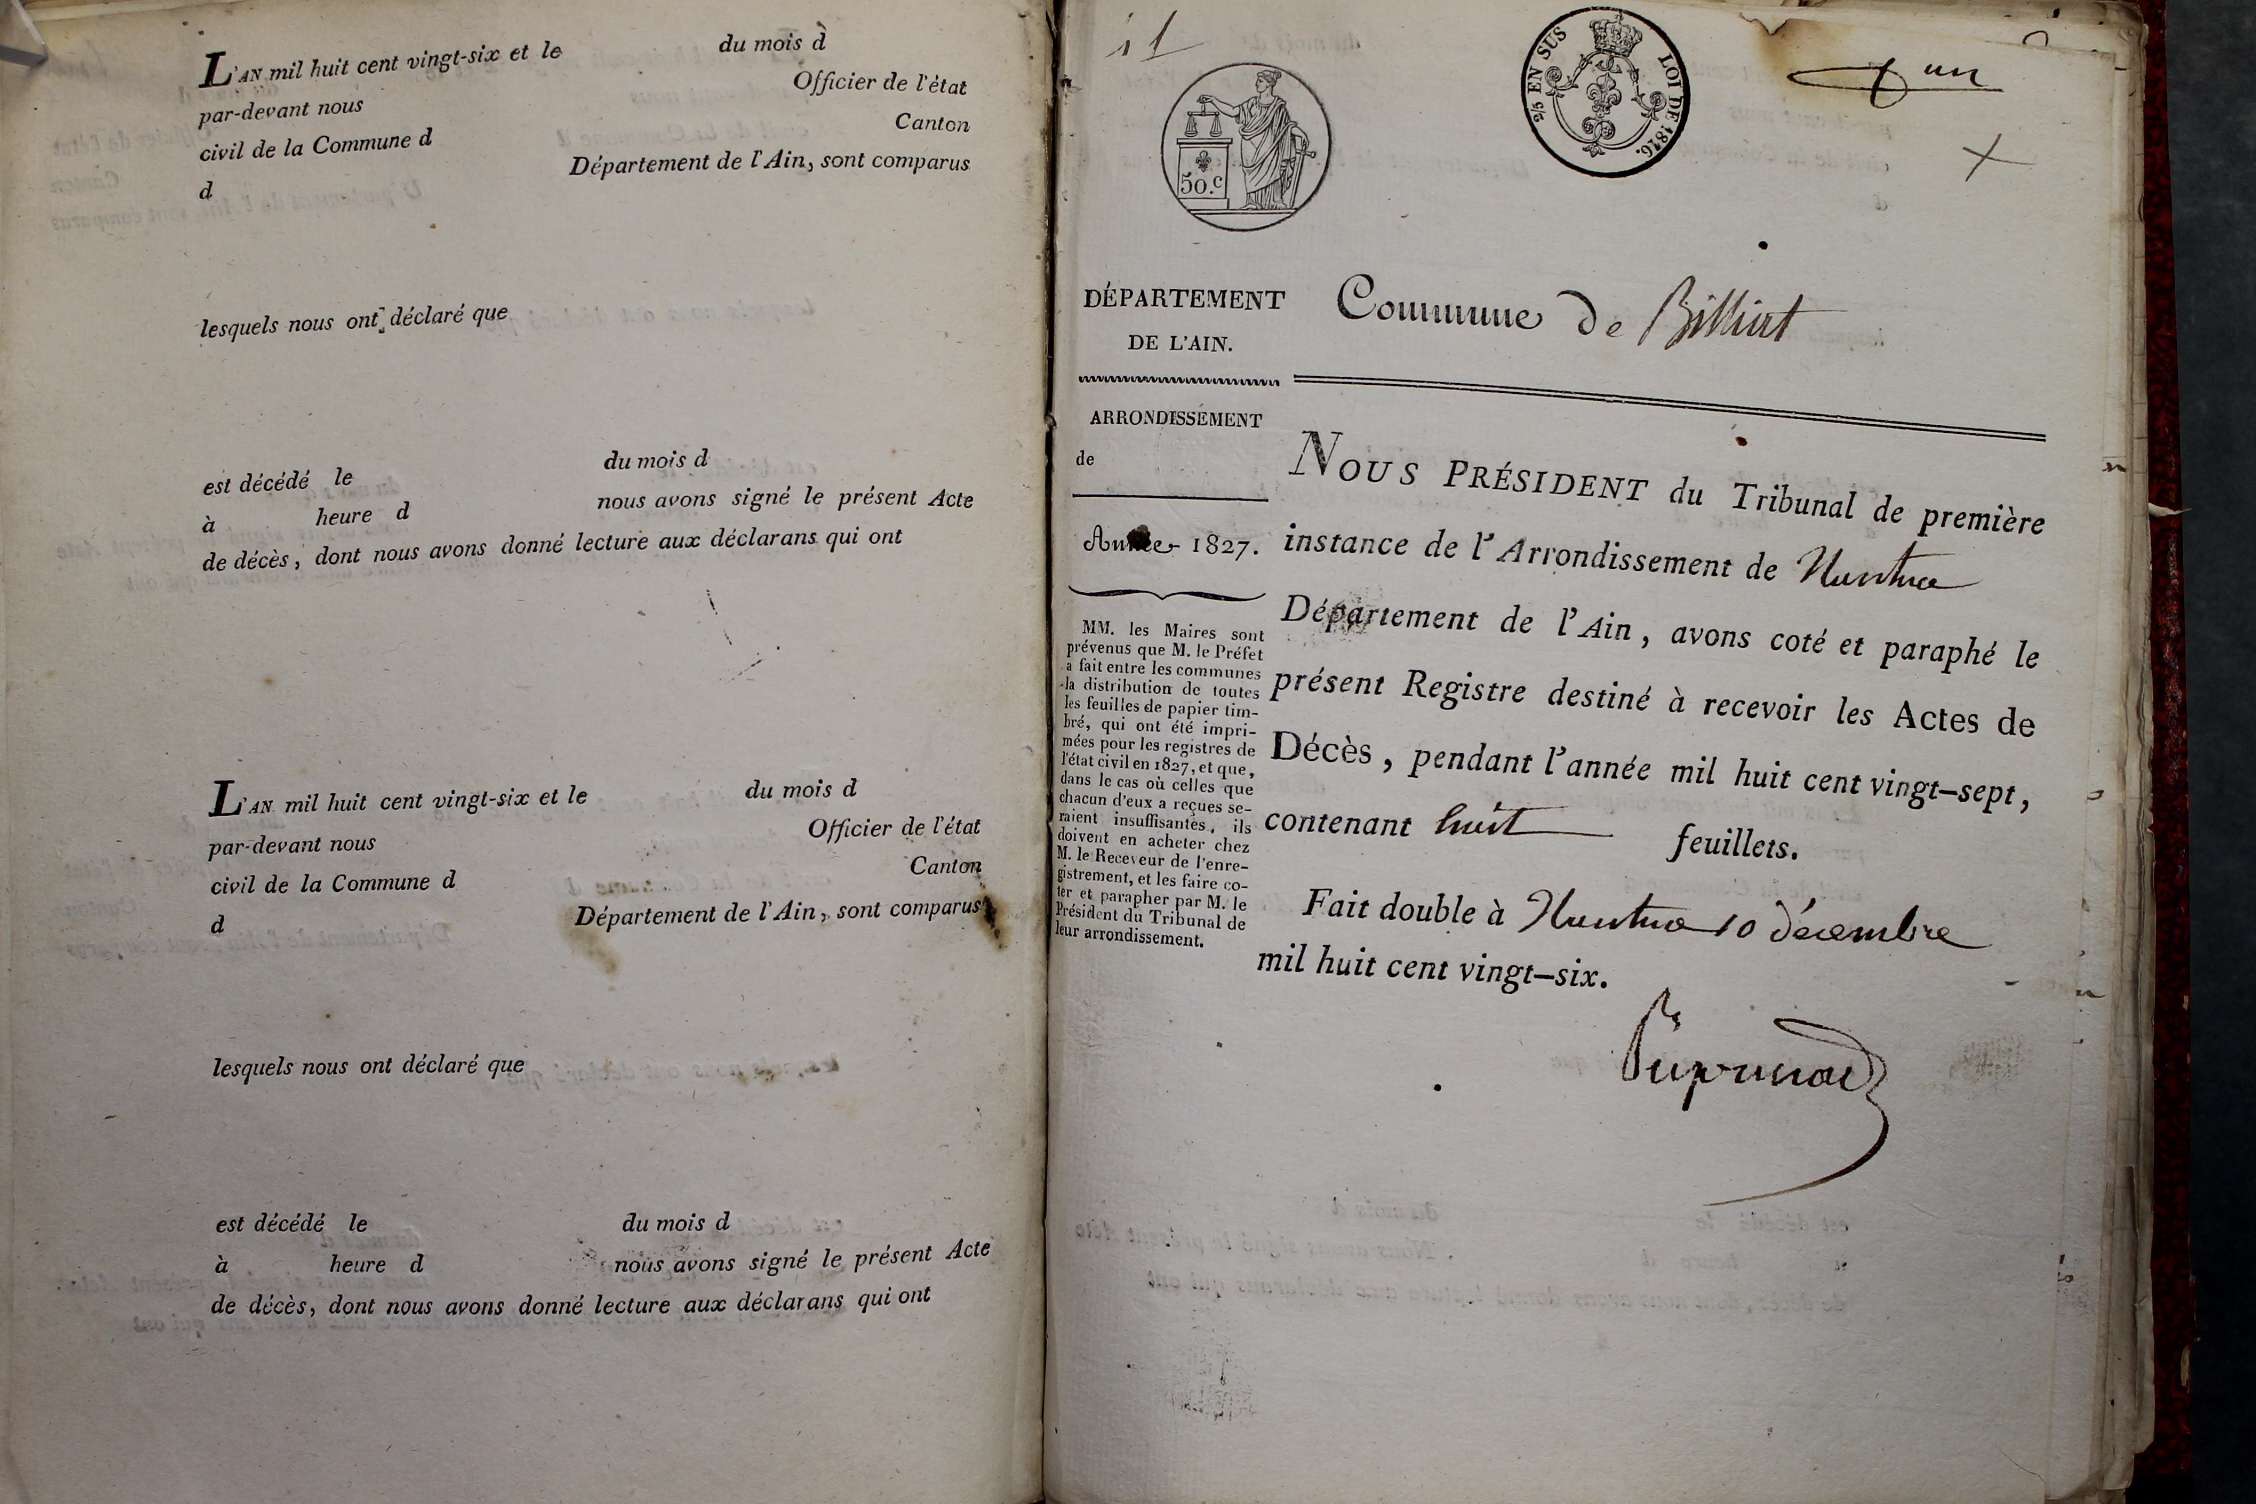 L'AN mil huit cent vingt-six et le du mois d
par-devant nous Officier de l'état
civil de la Commune d Canton
d Département de l'Ain, sont comparus
lesquels nous ont déclaré que
est décédé le du mois d
à heure d nous avons signé le présent Acte
de décès, dont nous avons donné lecture aux déclarans qui ont
L'AN mil huit cent vingt-six et le du mois d
par-devant nous Officier de l'état
civil de la Commune d Canton
d Département de l'Ain, sont comparus
lesquels nous ont déclaré que
est décédé le du mois d
à heure d nous avons signé le présent Acte
de décès, dont nous avons donné lecture aux déclarans qui ont
50.c
2/5 EN SUS LOI DE 1816.
un
DÉPARTEMENT
DE L'AIN.
Commune de Billiat
ARRONDISSEMENT
de
Année 1827.
MM. les Maires sont
prévenus que M. le Préfet
a fait entre les communes
la distribution de toutes
les feuilles de papier tim-
bré, qui ont été impri-
mées pour les registres de
l'état civil en 1827, et que,
dans le cas où celles que
chacun d'eux a reçues se-
raient insuffisantes, ils
doivent en acheter chez
M. le Receveur de l'enre-
gistrement, et les faire co-
ter et parapher par M. le
Président du Tribunal de
leur arrondissement.
NOUS PRÉSIDENT du Tribunal de première
instance de l'Arrondissement de Nantua
Département de l'Ain, avons coté et paraphé le
présent Registre destiné à recevoir les Actes de
Décès, pendant l'année mil huit cent vingt-sept,
contenant huit feuillets.
Fait double à Nantua 10 décembre
mil huit cent vingt-six.